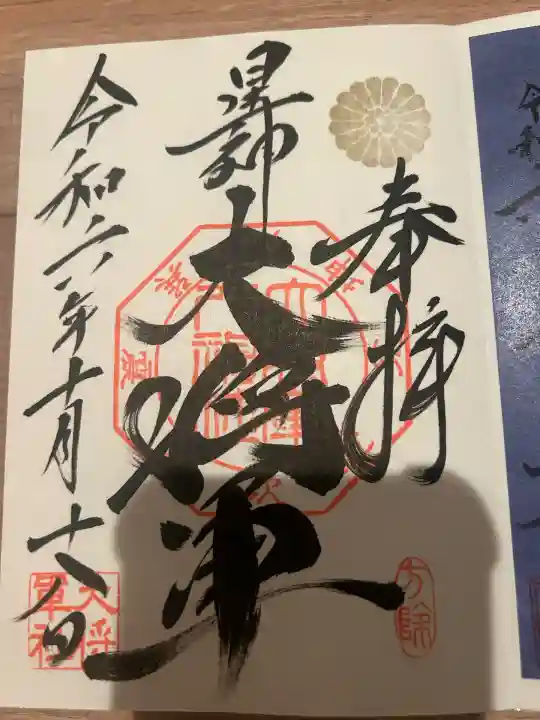 奉拝
星神
大将軍
令和六年十月十八日
方除
大将
軍神